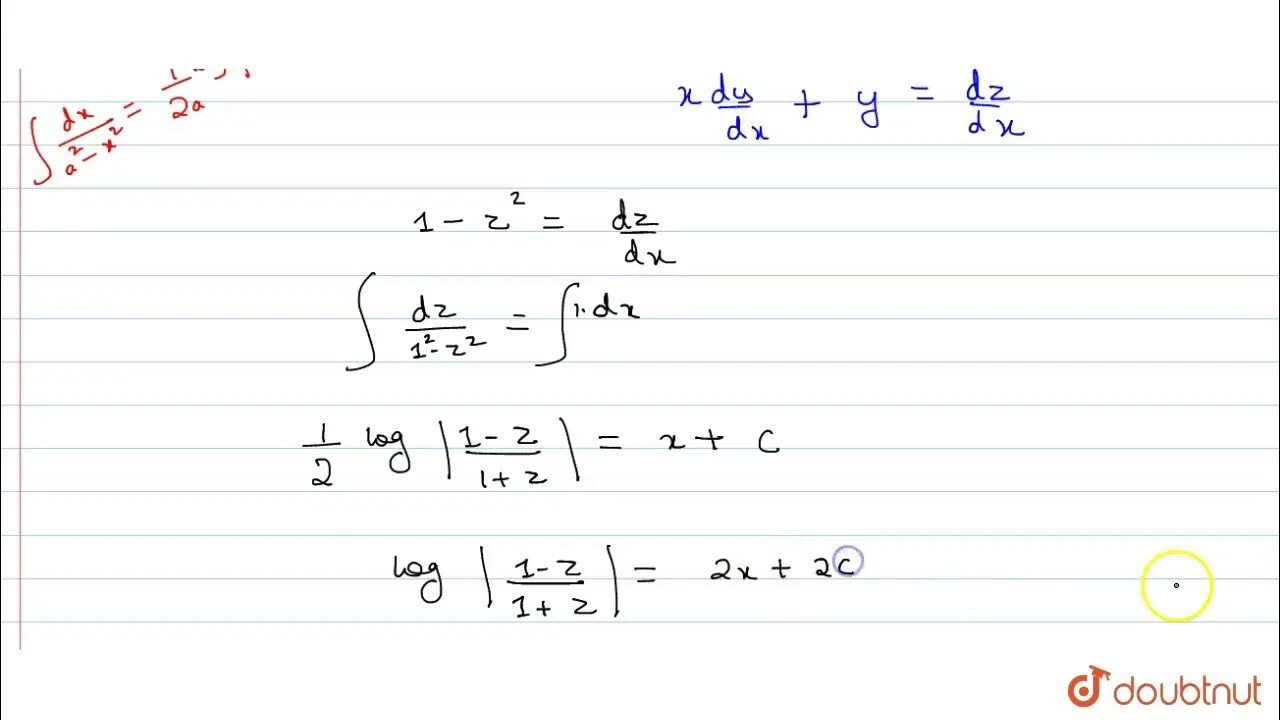 ∫ dx/(a² - x²) = 1/2a
x dy/dx + y = dz/dx
1 - z² = dz/dx
∫ dz/(1² - z²) = ∫ 1. dx
1/2 log |(1 - z)/(1 + z)| = x + c
log |(1 - z)/(1 + z)| = 2x + 2c
doubtnut